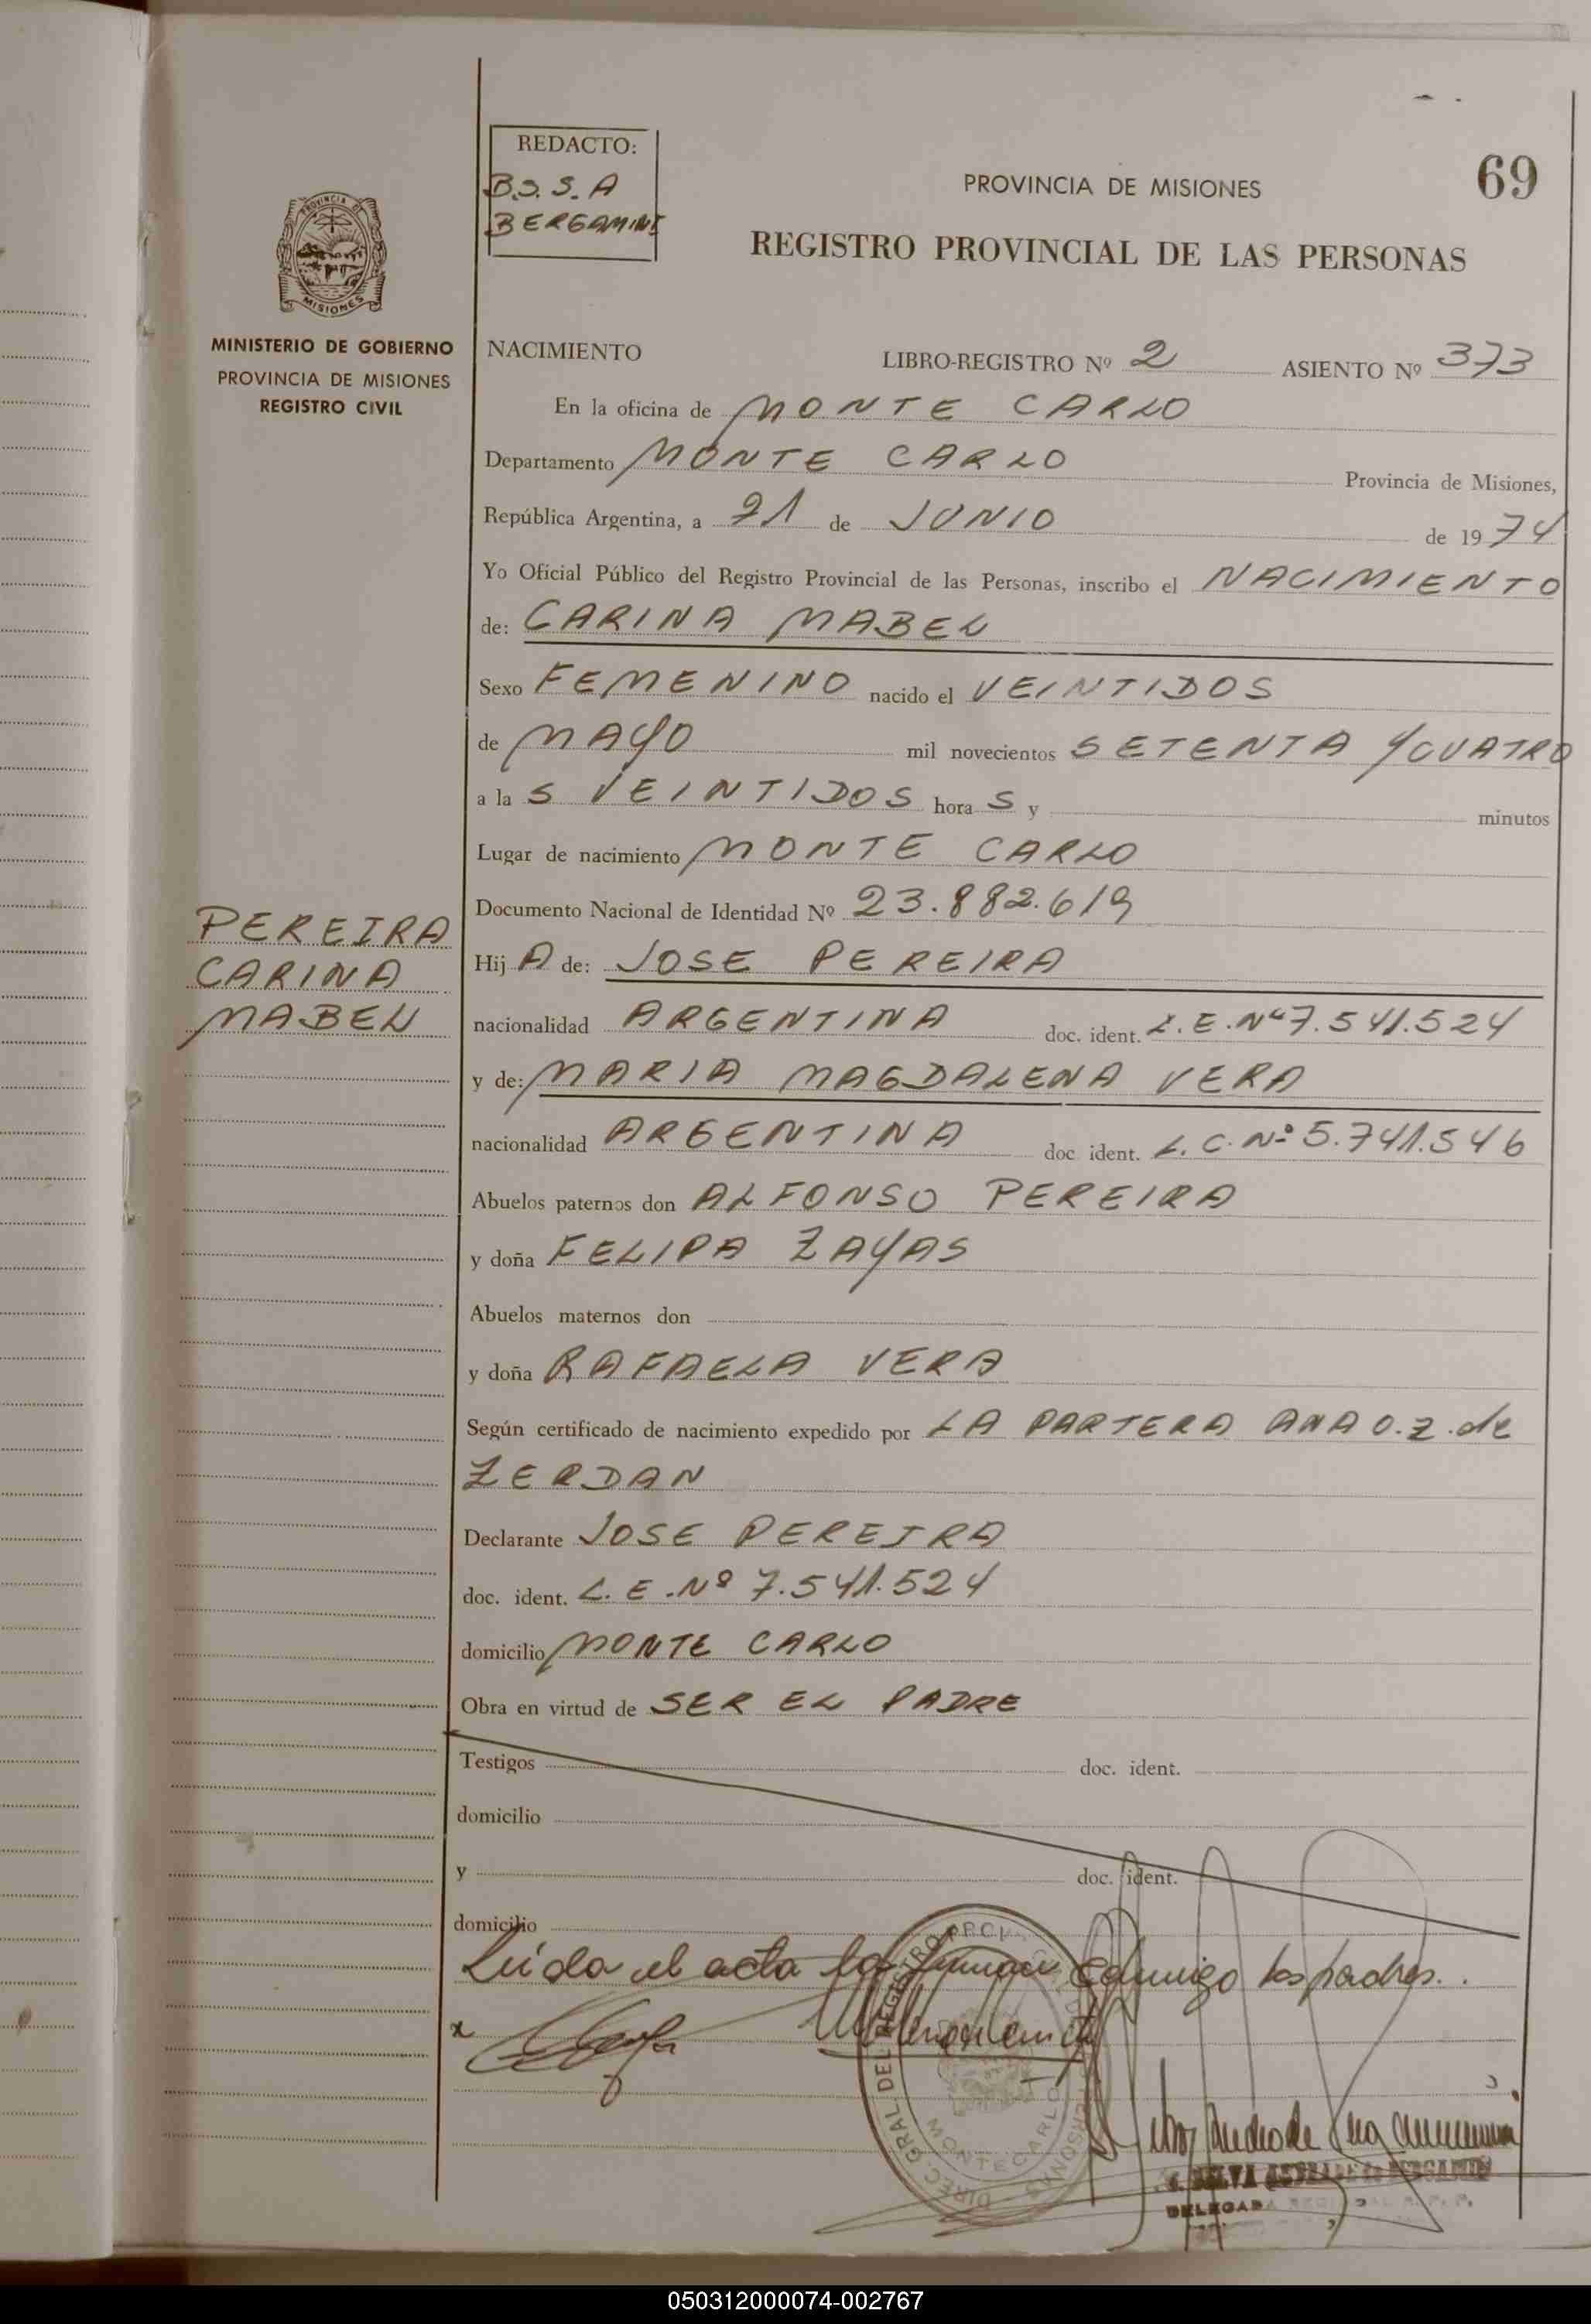 69
REDACTO:
B.S.S.A
BERGAMINI
PROVINCIA DE MISIONES
REGISTRO PROVINCIAL DE LAS PERSONAS
PROVINCIA DE
MISIONES
MINISTERIO DE GOBIERNO
PROVINCIA DE MISIONES
REGISTRO CIVIL
NACIMIENTO LIBRO-REGISTRO Nº 2 ASIENTO Nº 373
En la oficina de MONTE CARLO
Departamento MONTE CARLO Provincia de Misiones,
República Argentina, a 21 de JUNIO de 1974
Yo Oficial Público del Registro Provincial de las Personas, inscribo el NACIMIENTO
de: CARINA MABEL
Sexo FEMENINO nacido el VEINTIDOS
de MAYO mil novecientos SETENTA Y CUATRO
a la S VEINTIDOS hora S y minutos
Lugar de nacimiento MONTE CARLO
Documento Nacional de Identidad Nº 23.882.619
PEREIRA
CARINA
MABEL
Hij A de: JOSE PEREIRA
nacionalidad ARGENTINA doc. ident. L.E.Nº 7.541.524
y de: MARIA MAGDALENA VERA
nacionalidad ARGENTINA doc ident. L.C.Nº 5.741.546
Abuelos paternos don ALFONSO PEREIRA
y doña FELIPA ZAYAS
Abuelos maternos don
y doña RAFAELA VERA
Según certificado de nacimiento expedido por LA PARTERA ANA O.Z. de
ZERDAN
Declarante JOSE PEREIRA
doc. ident. L.E.Nº 7.541.524
domicilio MONTE CARLO
Obra en virtud de SER EL PADRE
Testigos doc. ident.
domicilio
y doc. ident.
domicilio
Leída el acta la firman conmigo los padres.
x
DIREC. GRAL DEL REGISTRO
MONTECARLO
DELEGADA
050312000074-002767